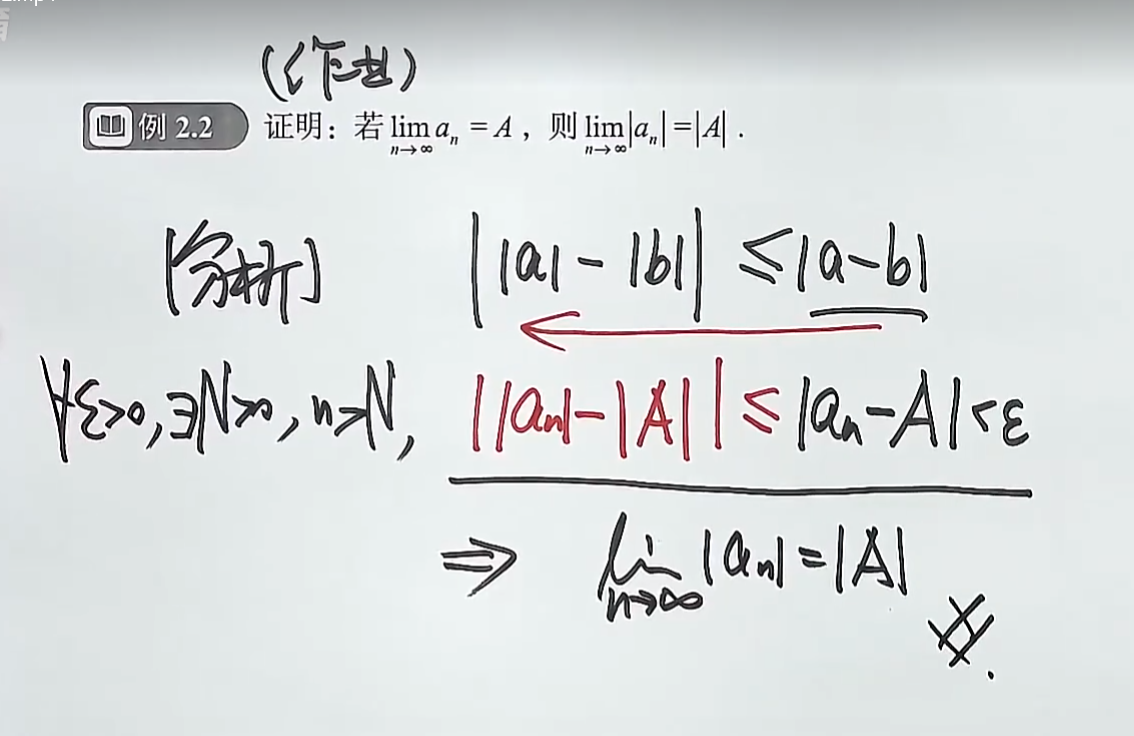 (作业)
例 2.2 证明：若 lim_{n→∞} a_n = A，则 lim_{n→∞} |a_n| = |A|.
[分析] ||a| - |b|| ≤ |a-b|
∀ε>0, ∃N>0, n>N, ||a_n| - |A|| ≤ |a_n - A| < ε
⇒ lim_{n→∞} |a_n| = |A|